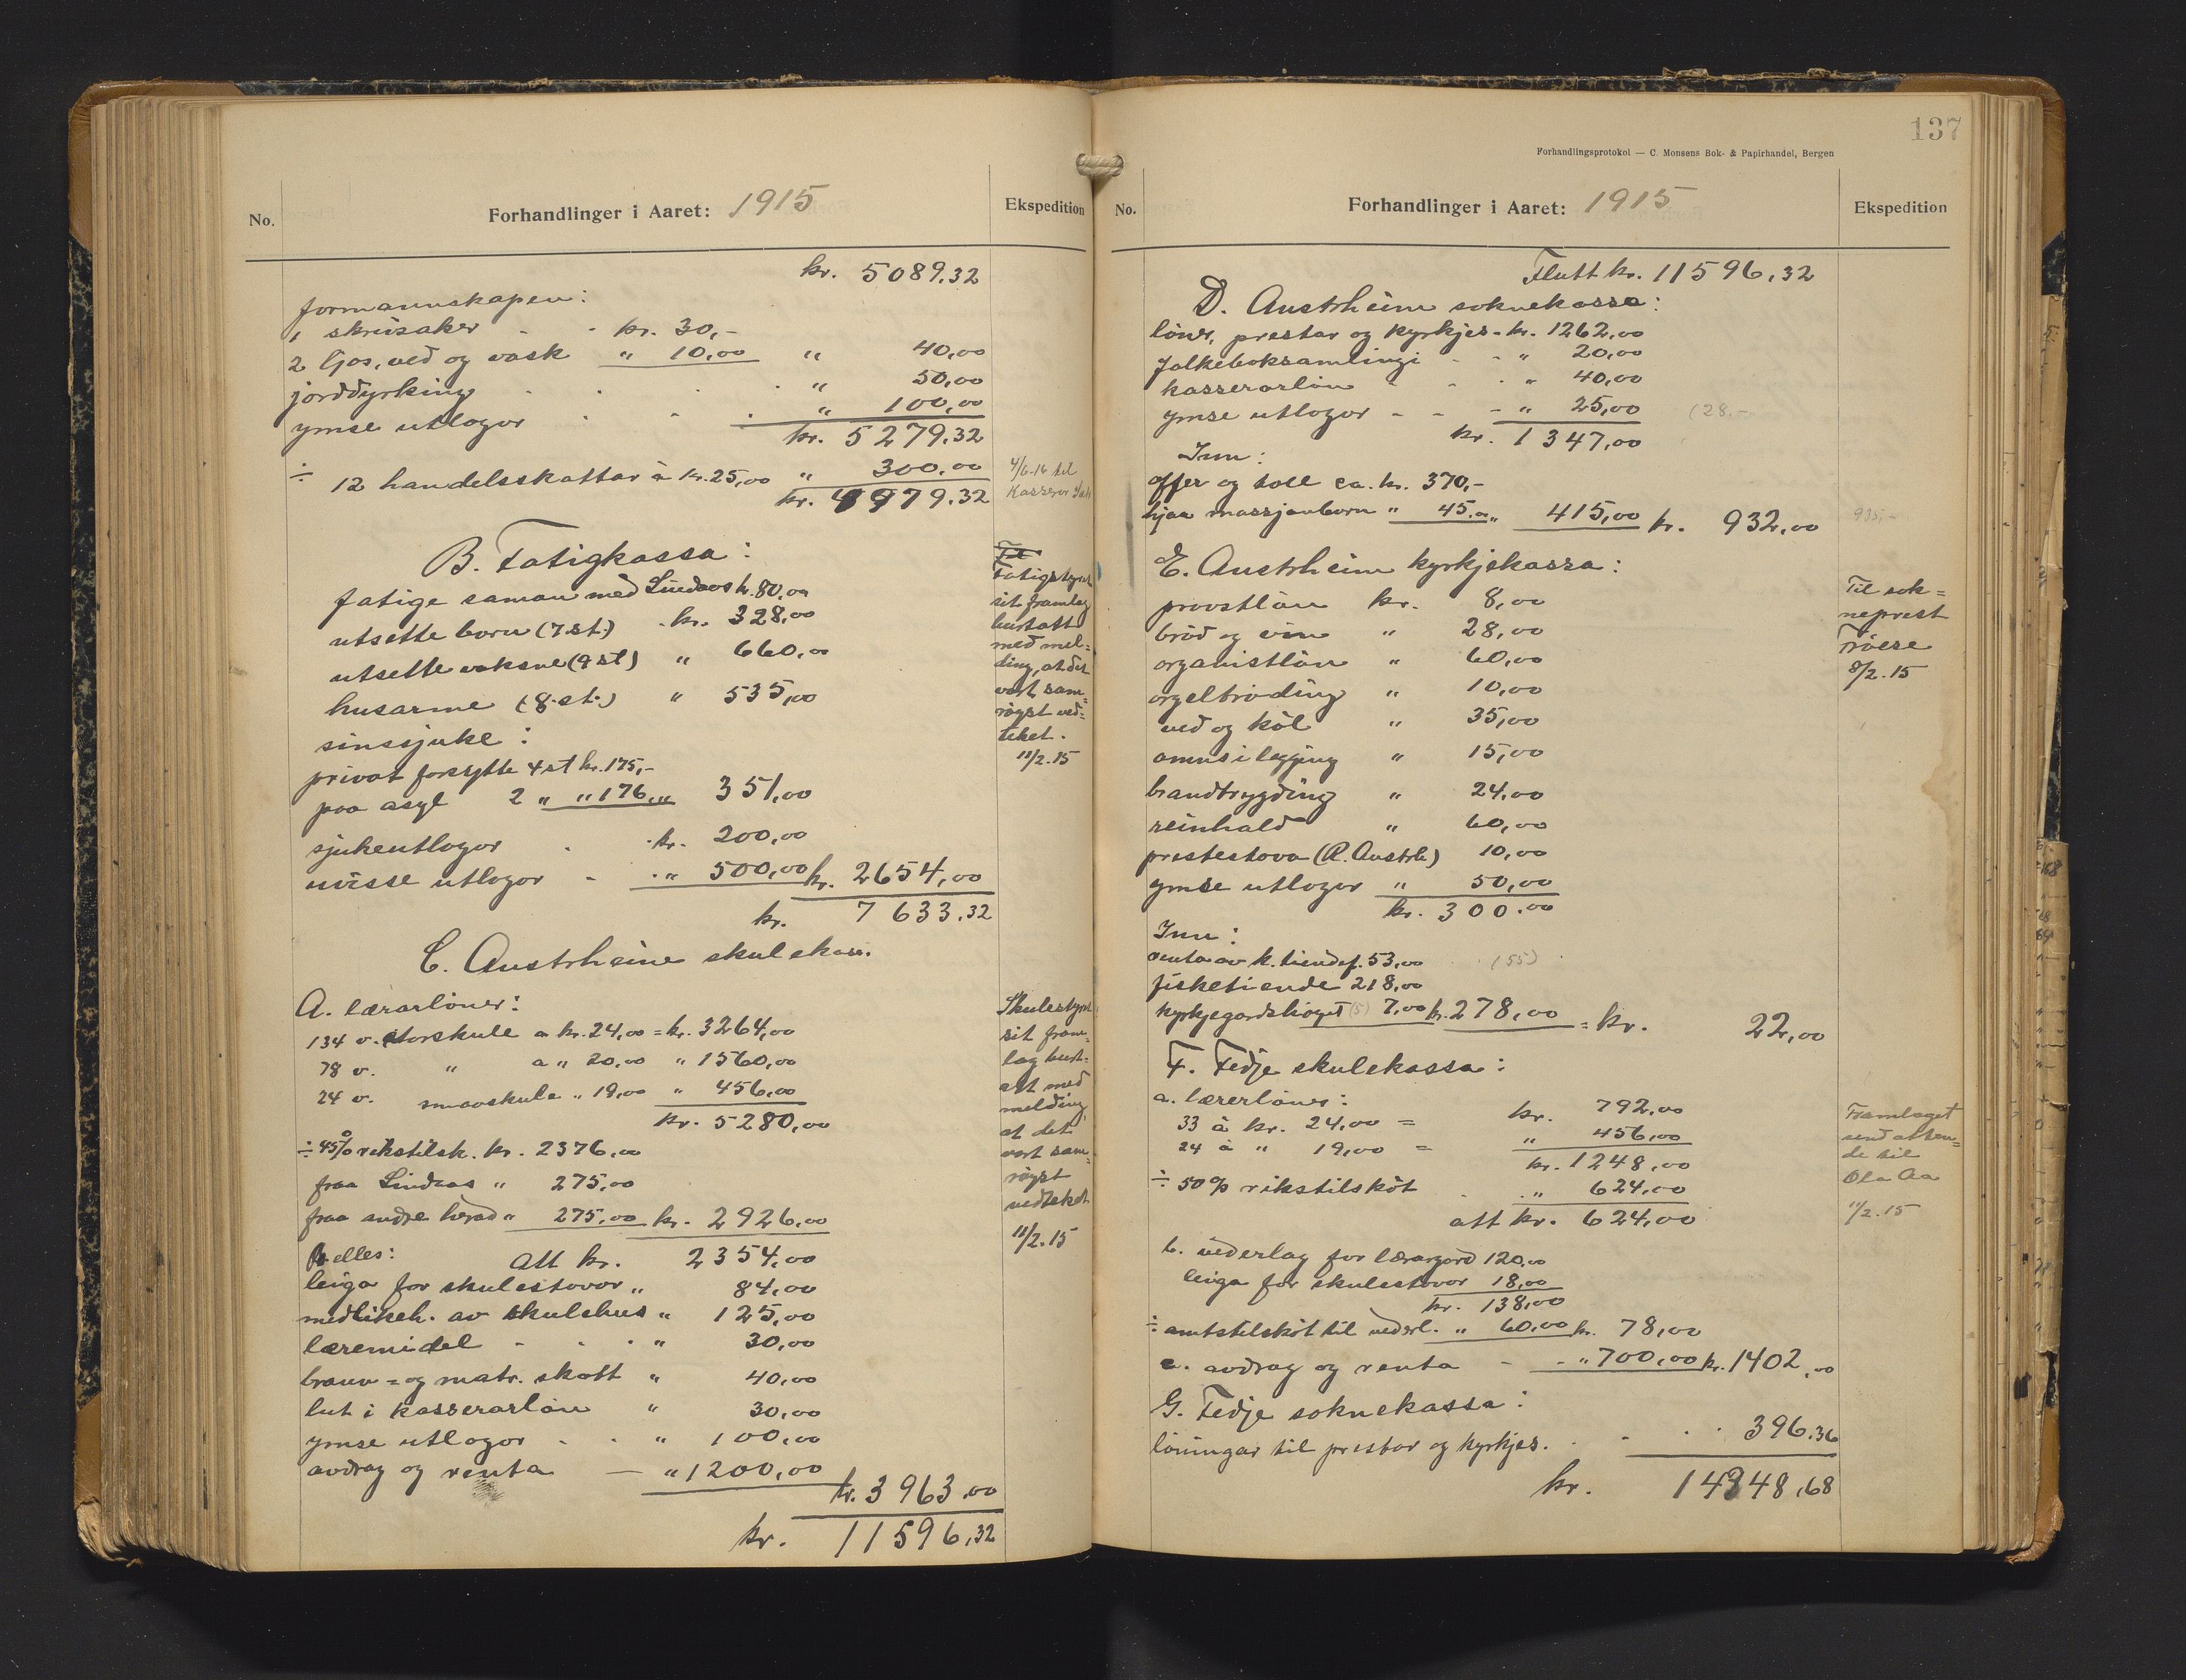 No.
Forhandlinger i Aaret: 1915
Ekspedition
kr. 5089.32
formannskapen:
1 skrivsaker - - kr. 30,-
2 ljos, ved og vask " 10,00 " 40,00
jorddyrking . . . " 50,00
ymse utlogor . - . " 100,00
kr. 5279.32
÷ 12 handelsskattar à kr. 25,00 " 300,00
4/6-16 til
Kasserer
kr. 4979.32
B. Fatigkassa:
fatige saman med Lindaas kr. 80,00
utsette born (7 st.) . kr. 328,00
utsette vaksne (9 st) " 660,00
husarme (8 st.) " 535,00
sinssjuke:
privat forsytte 4 st kr. 175,-
paa asyl 2 " " 176,00 351,00
sjukeutlogor . . kr. 200,00
uvisse utlogor - . " 500,00 kr. 2654,00
kr. 7633.32
Til
Fatigstyret
sit framlag
burtatt
med mel=
ding, at det
vart sam=
røyst ved=
teket.
11/2.15
C. Austrheim skulekasse.
A. lærarløner:
134 v. storskule a kr. 24,00 = kr. 3264,00
78 v. " a " 20,00 " 1560,00
24 v. smaaskule " 19,00 " 456,00
kr. 5280,00
÷ 45% rikstilsk. kr. 2376,00
fraa Lindaas " 275,00
fraa andre herad " 275,00 kr. 2926,00
att kr. 2354,00
B elles:
leiga for skulestovor " 84,00
medlikeh. av skulehus " 125,00
læremidel - . . " 30,00
brann= og matr. skatt " 40,00
lut i kasserarløn " 30,00
ymse utlogor . . " 100,00
avdrag og renta — " 1200,00
kr. 3963,00
kr. 11596,32
Skulestyret
sit fram=
lag burt=
att med
melding
at det
vart sam=
røyst
vedteket
11/2.15
137
Forhandlingsprotokol — C. Monsens Bok- & Papirhandel, Bergen
No.
Forhandlinger i Aaret: 1915
Ekspedition
Flutt kr. 11596,32
D. Austrheim soknekassa:
løner, prestar og kyrkjes. kr. 1262,00
folkeboksamlingi - - " 20,00
kasserarløn - - . " 40,00
ymse utlogor - - - " 25,00 (28.-
kr. 1347,00
Inn:
offer og toll ca. kr. 370,-
hjaa massjonborn " 45.00 " 415,00 kr. 932,00
935,-
E. Austrheim kyrkjekassa:
provstløn kr. 8,00
brød og vin " 28,00
organistløn " 60,00
orgeltrøding " 10,00
ved og kol " 35,00
omnsilegging " 15,00
brandtrygding " 24,00
reinhald " 60,00
prestestova (R. Austrh.) 10,00
ymse utlogor " 50,00
kr. 300.00
Til sok=
neprest
Frøese
8/2.15
Inn:
renta av k. tiendef. 53,00 (55)
fisketiende 218,00
kyrkjegardshøyet (5) 7,00 kr. 278,00 = kr. 22,00
F. Fedje skulekassa:
a. lærerløner:
33 à kr. 24,00 = kr. 792,00
24 à " 19,00 = " 456,00
kr. 1248,00
÷ 50% rikstilskot . . " 624,00
att kr. 624,00
Framlaget
send atten=
de til
Ola Aa
11/2.15
b. vederlag for lærargard 120,00
leiga for skulestovor 18,00
kr. 138,00
÷ amtstilskot til vederl. " 60,00 kr. 78,00
c. avdrag og renta - - " 700,00 kr. 1402,00
G. Fedje soknekassa:
løningar til prestar og kyrkjes. . - . . 396.36
kr. 14348,68